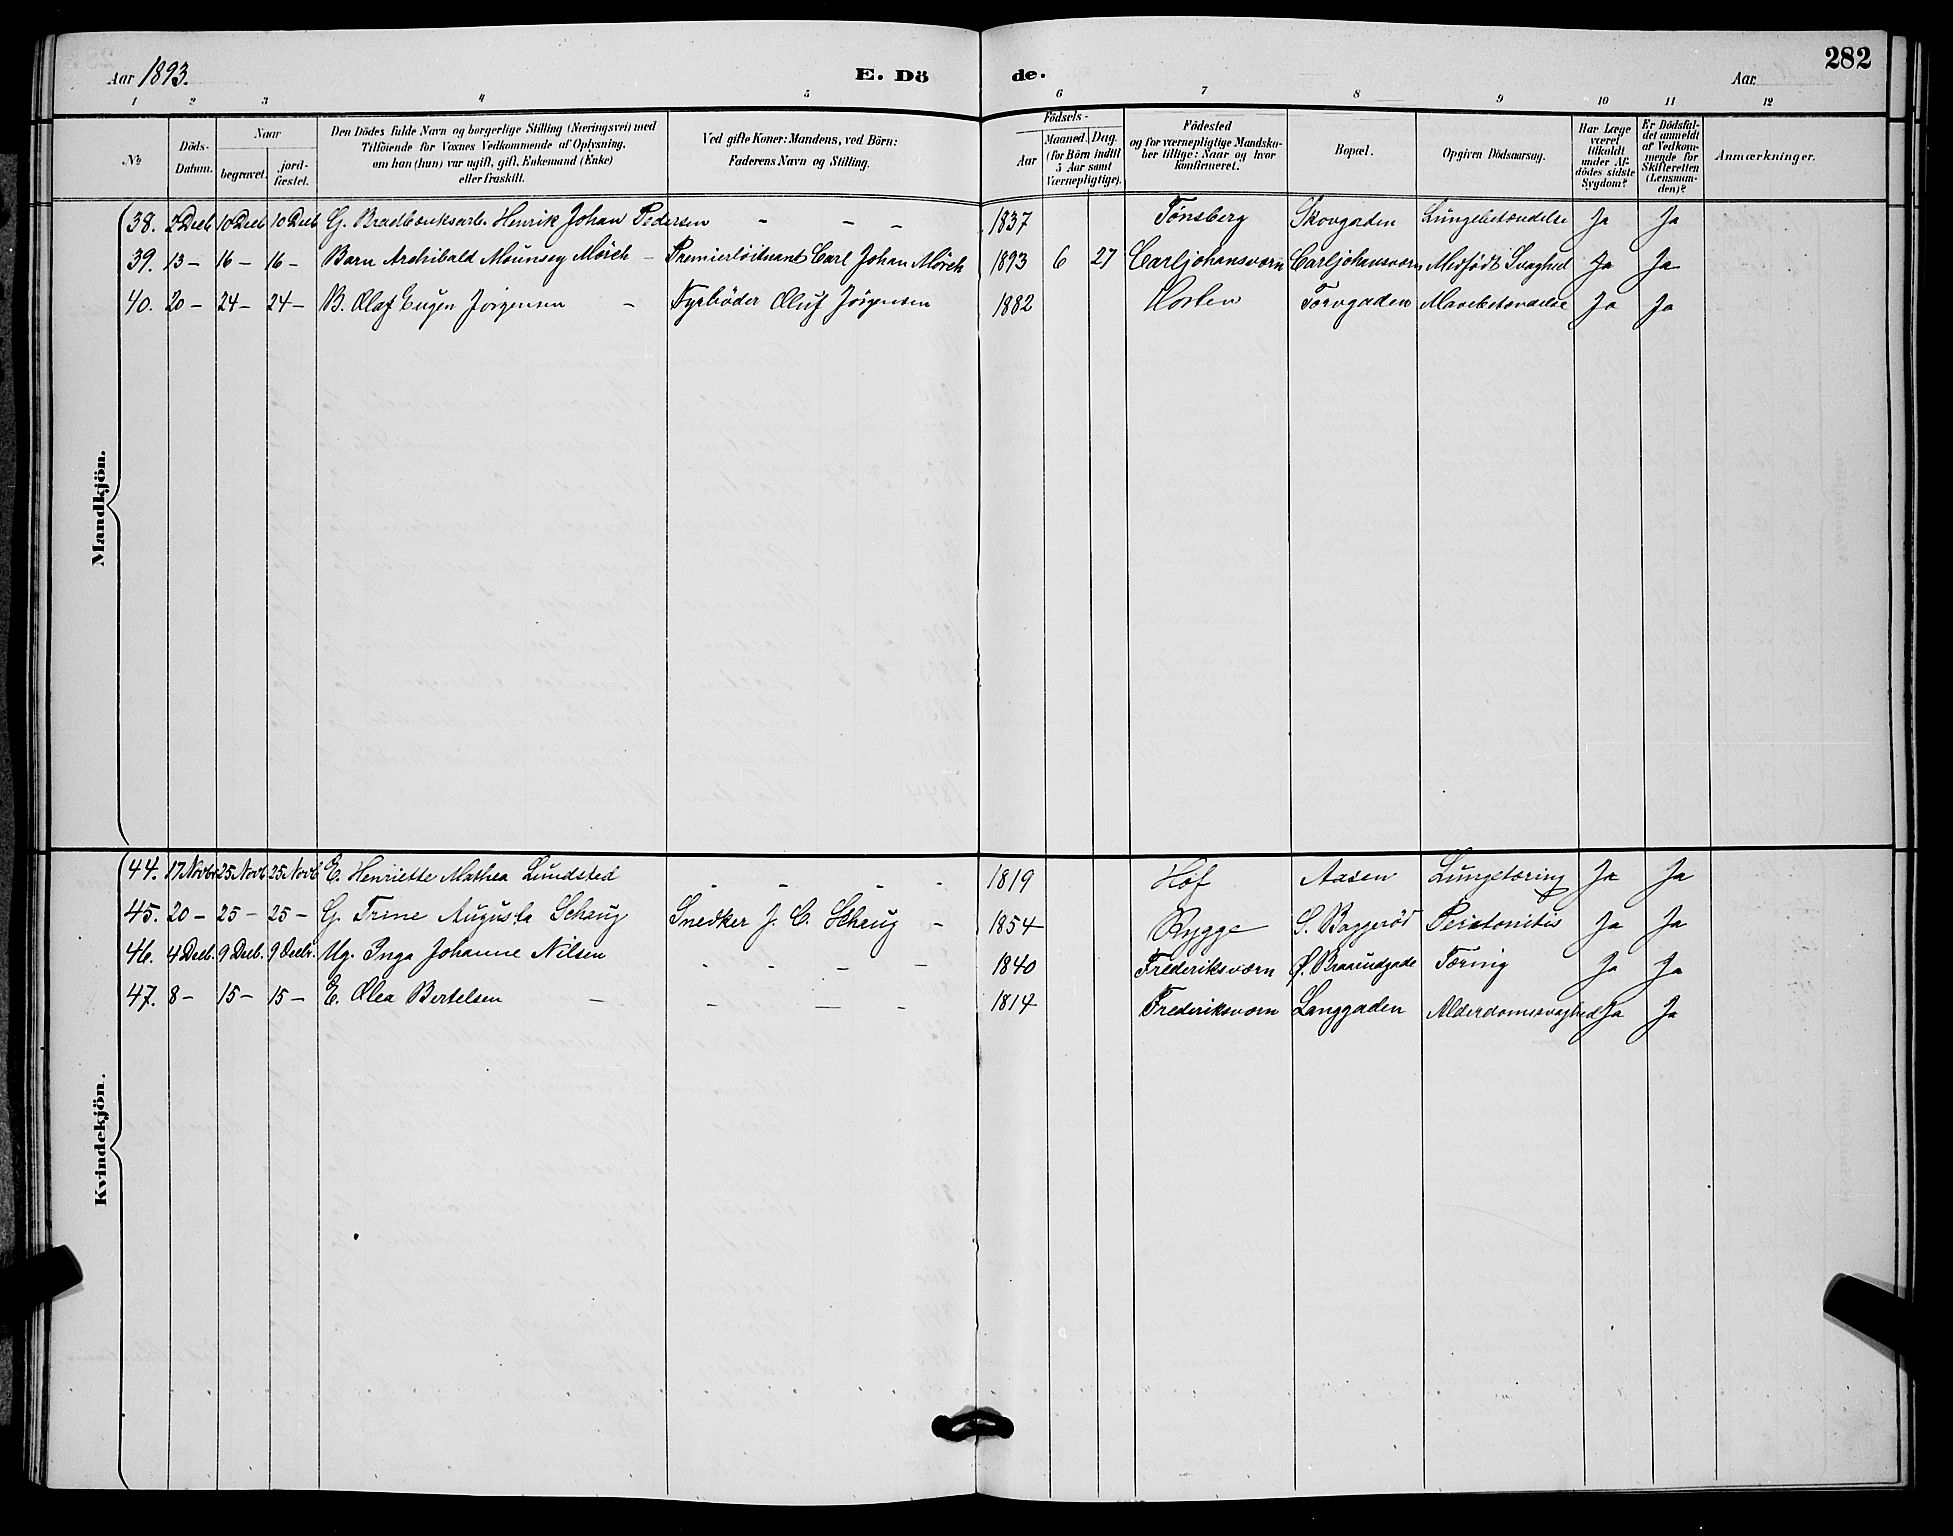 Aar 1893.
E. Dö
de.
Aar
282
1 2 3 4 5 6 7 8 9 10 11 12
No
Döds-Datum.
Naar
begravet.
jord-fæstet.
Den Dödes fulde Navn og borgerlige Stilling (Næringsvei) med
Tilföiende for Voxnes Vedkommende af Oplysning,
om han (hun) var ugift, gift, Enkemand (Enke)
eller fraskilt.
Ved gifte Koner: Mandens, ved Börn:
Faderens Navn og Stilling.
Födsels-
Aar
Maaned. Dag.
(for Börn indtil
5 Aar samt
Værnepligtige).
Födested
og for værnepligtige Mandska-
ber tillige: Naar og hvor
konfirmeret.
Bopæl.
Opgiven Dödsaarsag.
Har Læge
været
tilkaldt
under Af-
dödes sidste
Sygdom?
Er Dödsfal-
det anmeldt
af Vedkom-
mende for
Skifteretten
(Lensman-
den)?
Anmærkninger.
Mandkjön.
38. 2 Decb. 10 Decb 10 Decb G. Henrik Johan Pedersen - - - 1837 Tønsberg Skovgaden Lungebetændelse Ja Ja
39. 13 - 16 - 16 - Barn Archibald Mounsey Mörch - Premierlöitnant Carl Johan Mörch 1893 6 27 Carljohansværn Carljohansværn Medfödt Svaghed Ja Ja
40. 20 - 24 - 24 - B. Olaf Eugen Jörgensen - Fyrböder Oluf Jörgensen 1882 Horten Torvgaden Mavebetændelse Ja Ja
Kvindekjön.
44. 17 Novbr 25 Novb. 25 Novb. E. Henriette Mathea Lundsted - - - - 1819 Hof Aasen Lungetæring Ja Ja
45. 20 - 25 - 25 - G. Trine Augusta Schaug Snedker J. C. Schaug - 1854 Rygge S. Baggeröd Peritonitis Ja Ja
46. 4 Decb. 9 Decb. 9 Decbr. Ug. Inga Johanne Nilsen - - - - 1840 Frederiksværn Ø. Braarudgade Tæring Ja Ja
47. 8 - 15 - 15 - E. Olea Bertelsen - - - - 1814 Frederiksværn Langgaden Alderdomssvaghed Ja Ja